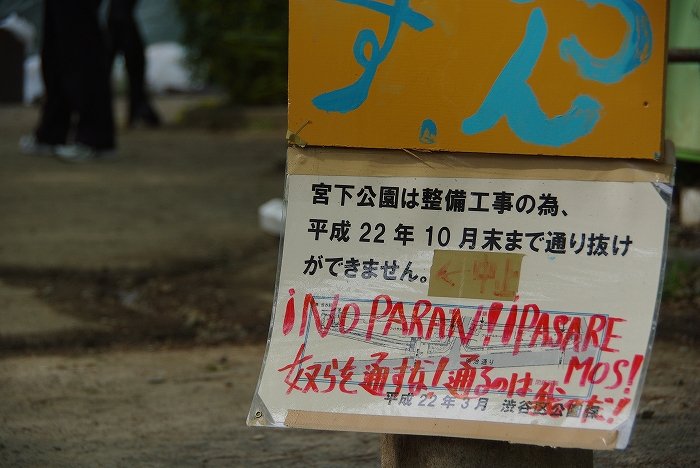 す
ん
宮下公園は整備工事の為、
平成22年10月末まで通り抜け
ができません。
←中止
¡NO PARAN! ¡PASARE
MOS!
奴らを通すな!通るのは だ!!
平成22年3月 渋谷区公園課